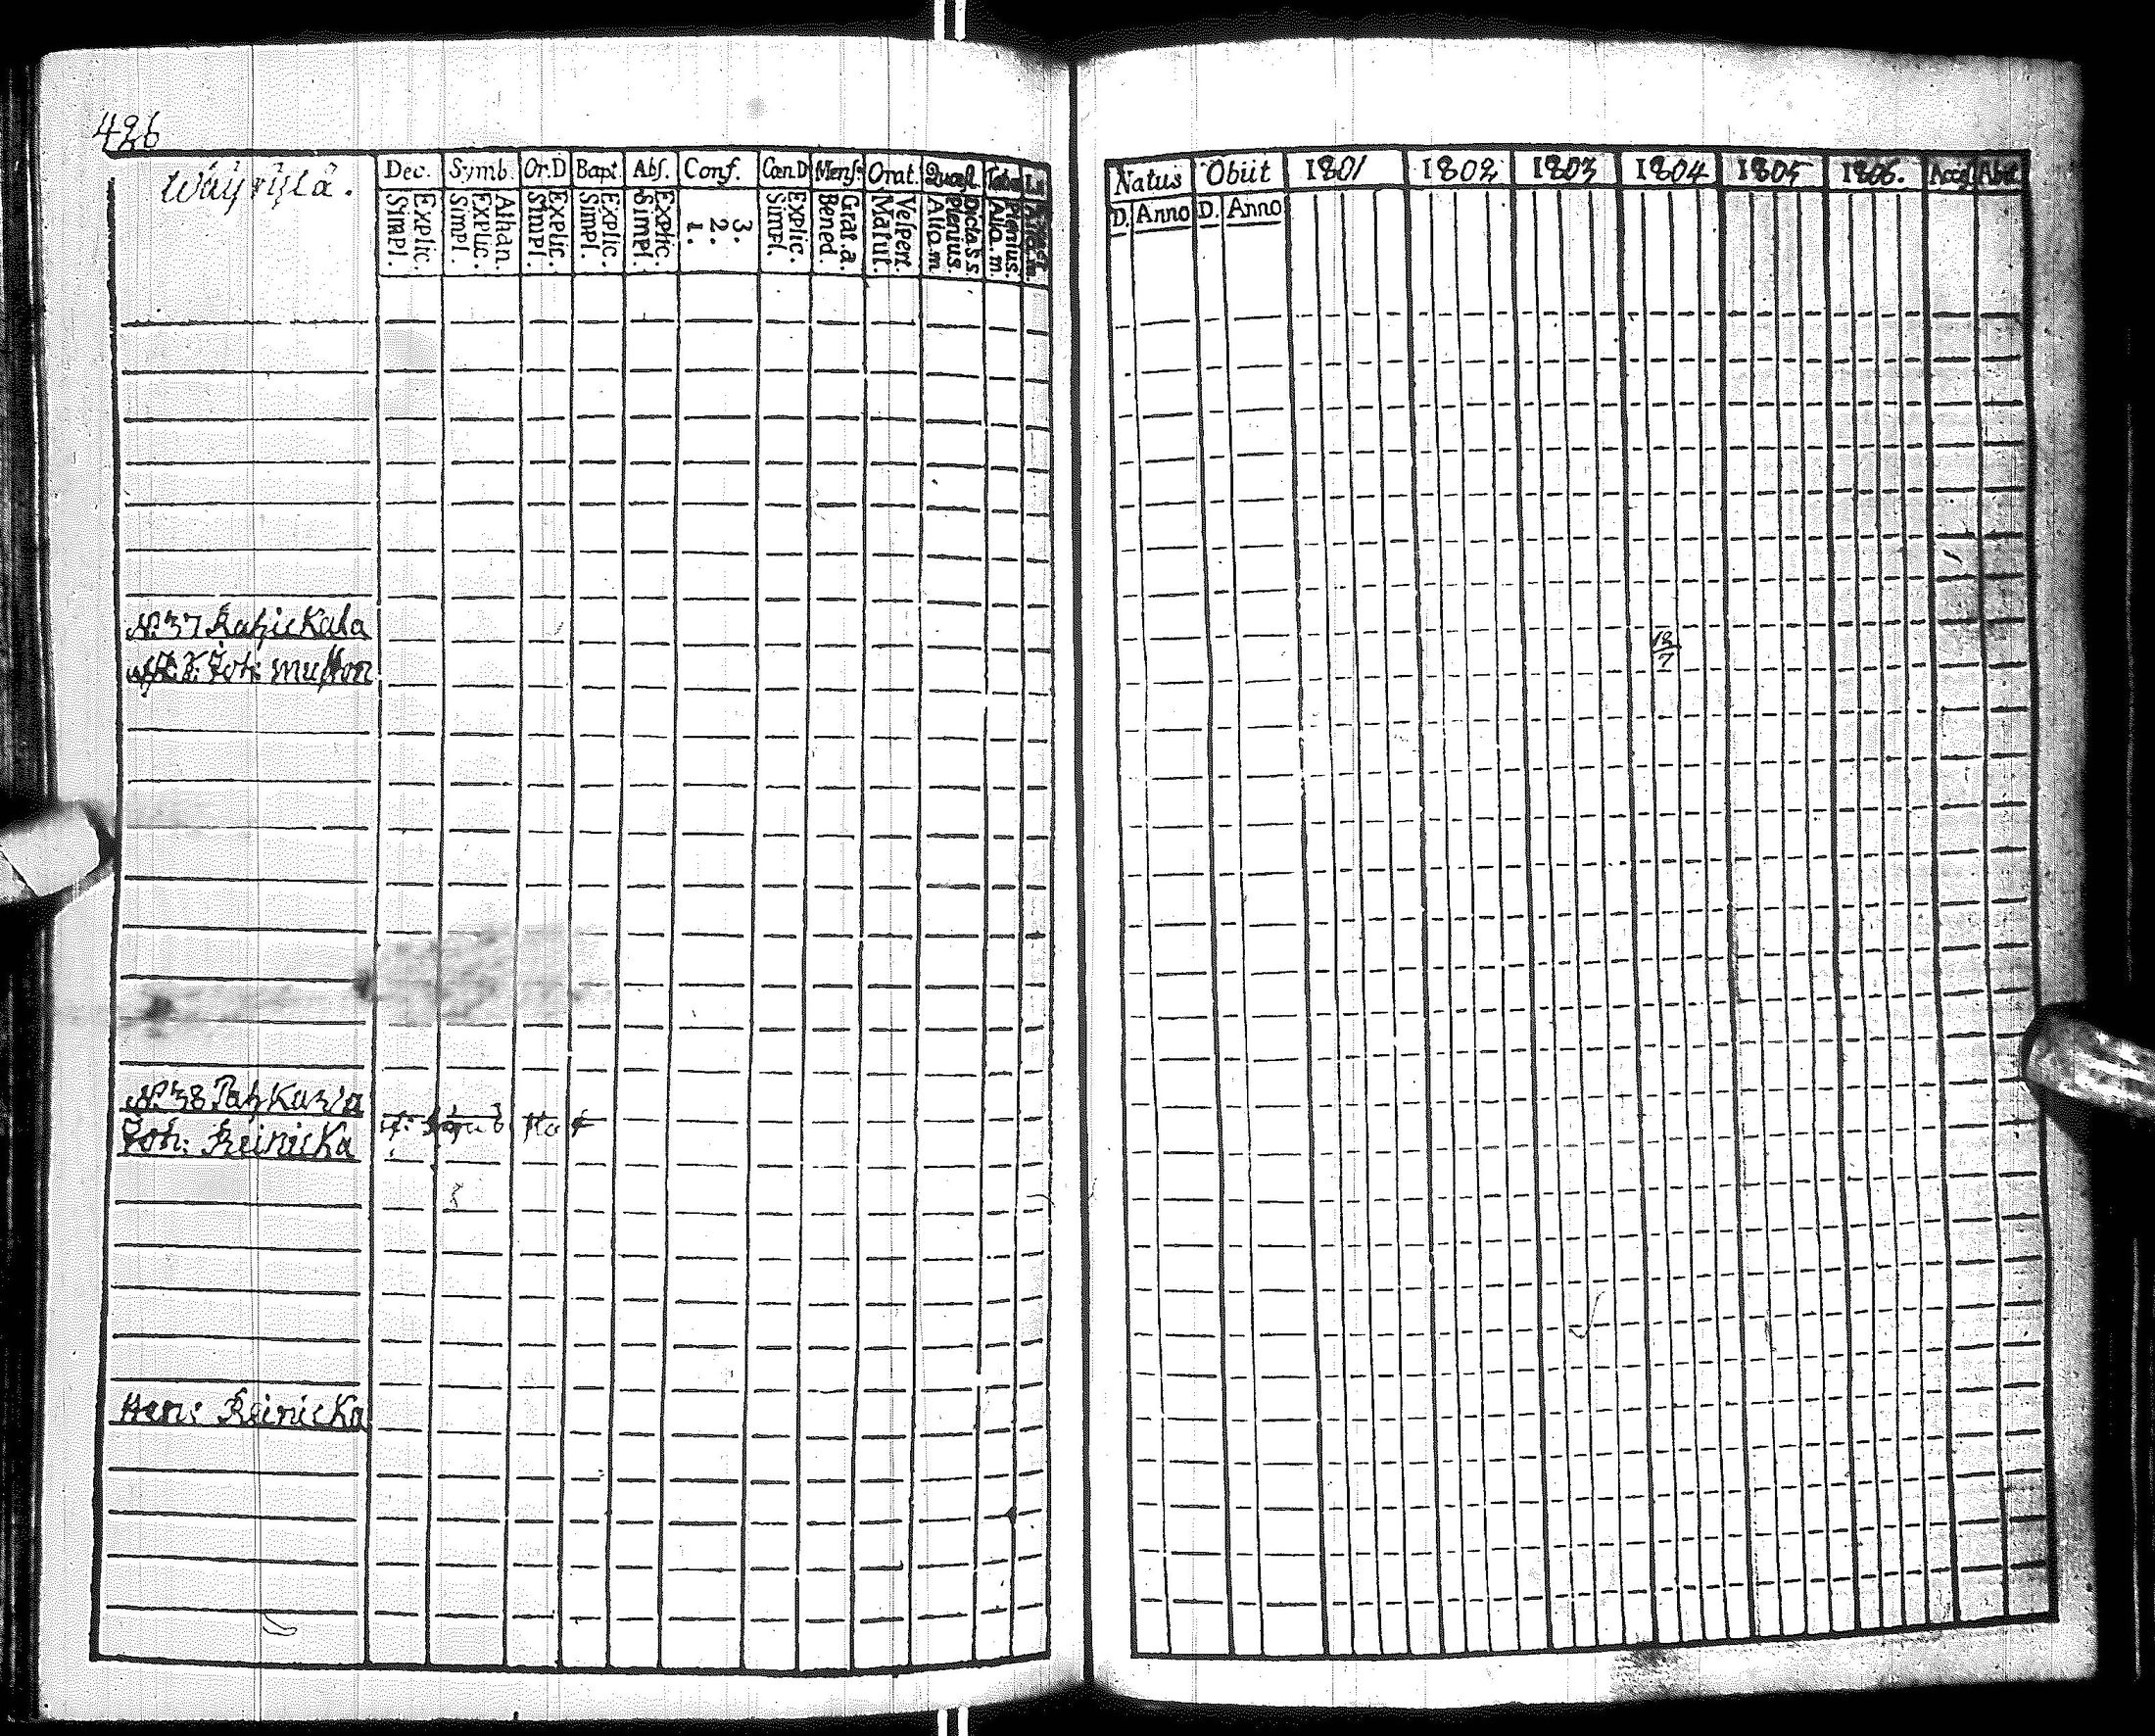 426
Wäyrylä.
Dec. Symb. Or.D Bapt. Abs. Conf. Cœn.D Mens. Orat. Quæst. Tabu
Explic. Simpl. Athan. Explic. Simpl. Explic. Simpl. Explic. Simpl. Explic. Simpl. 3. 2. 1. Explic. Simpl. Grat.a. Bened. Vespert. Matut. Dicta.s.s. Plenius. Alio.m. Plenius. Alio.m.
N:37
Joh:
N:38
Joh: Reinicka
Hen: Reinicka
Natus Obiit 1801 1802 1803 1804 1805 1806. Acces. Abit.
D. Anno D. Anno